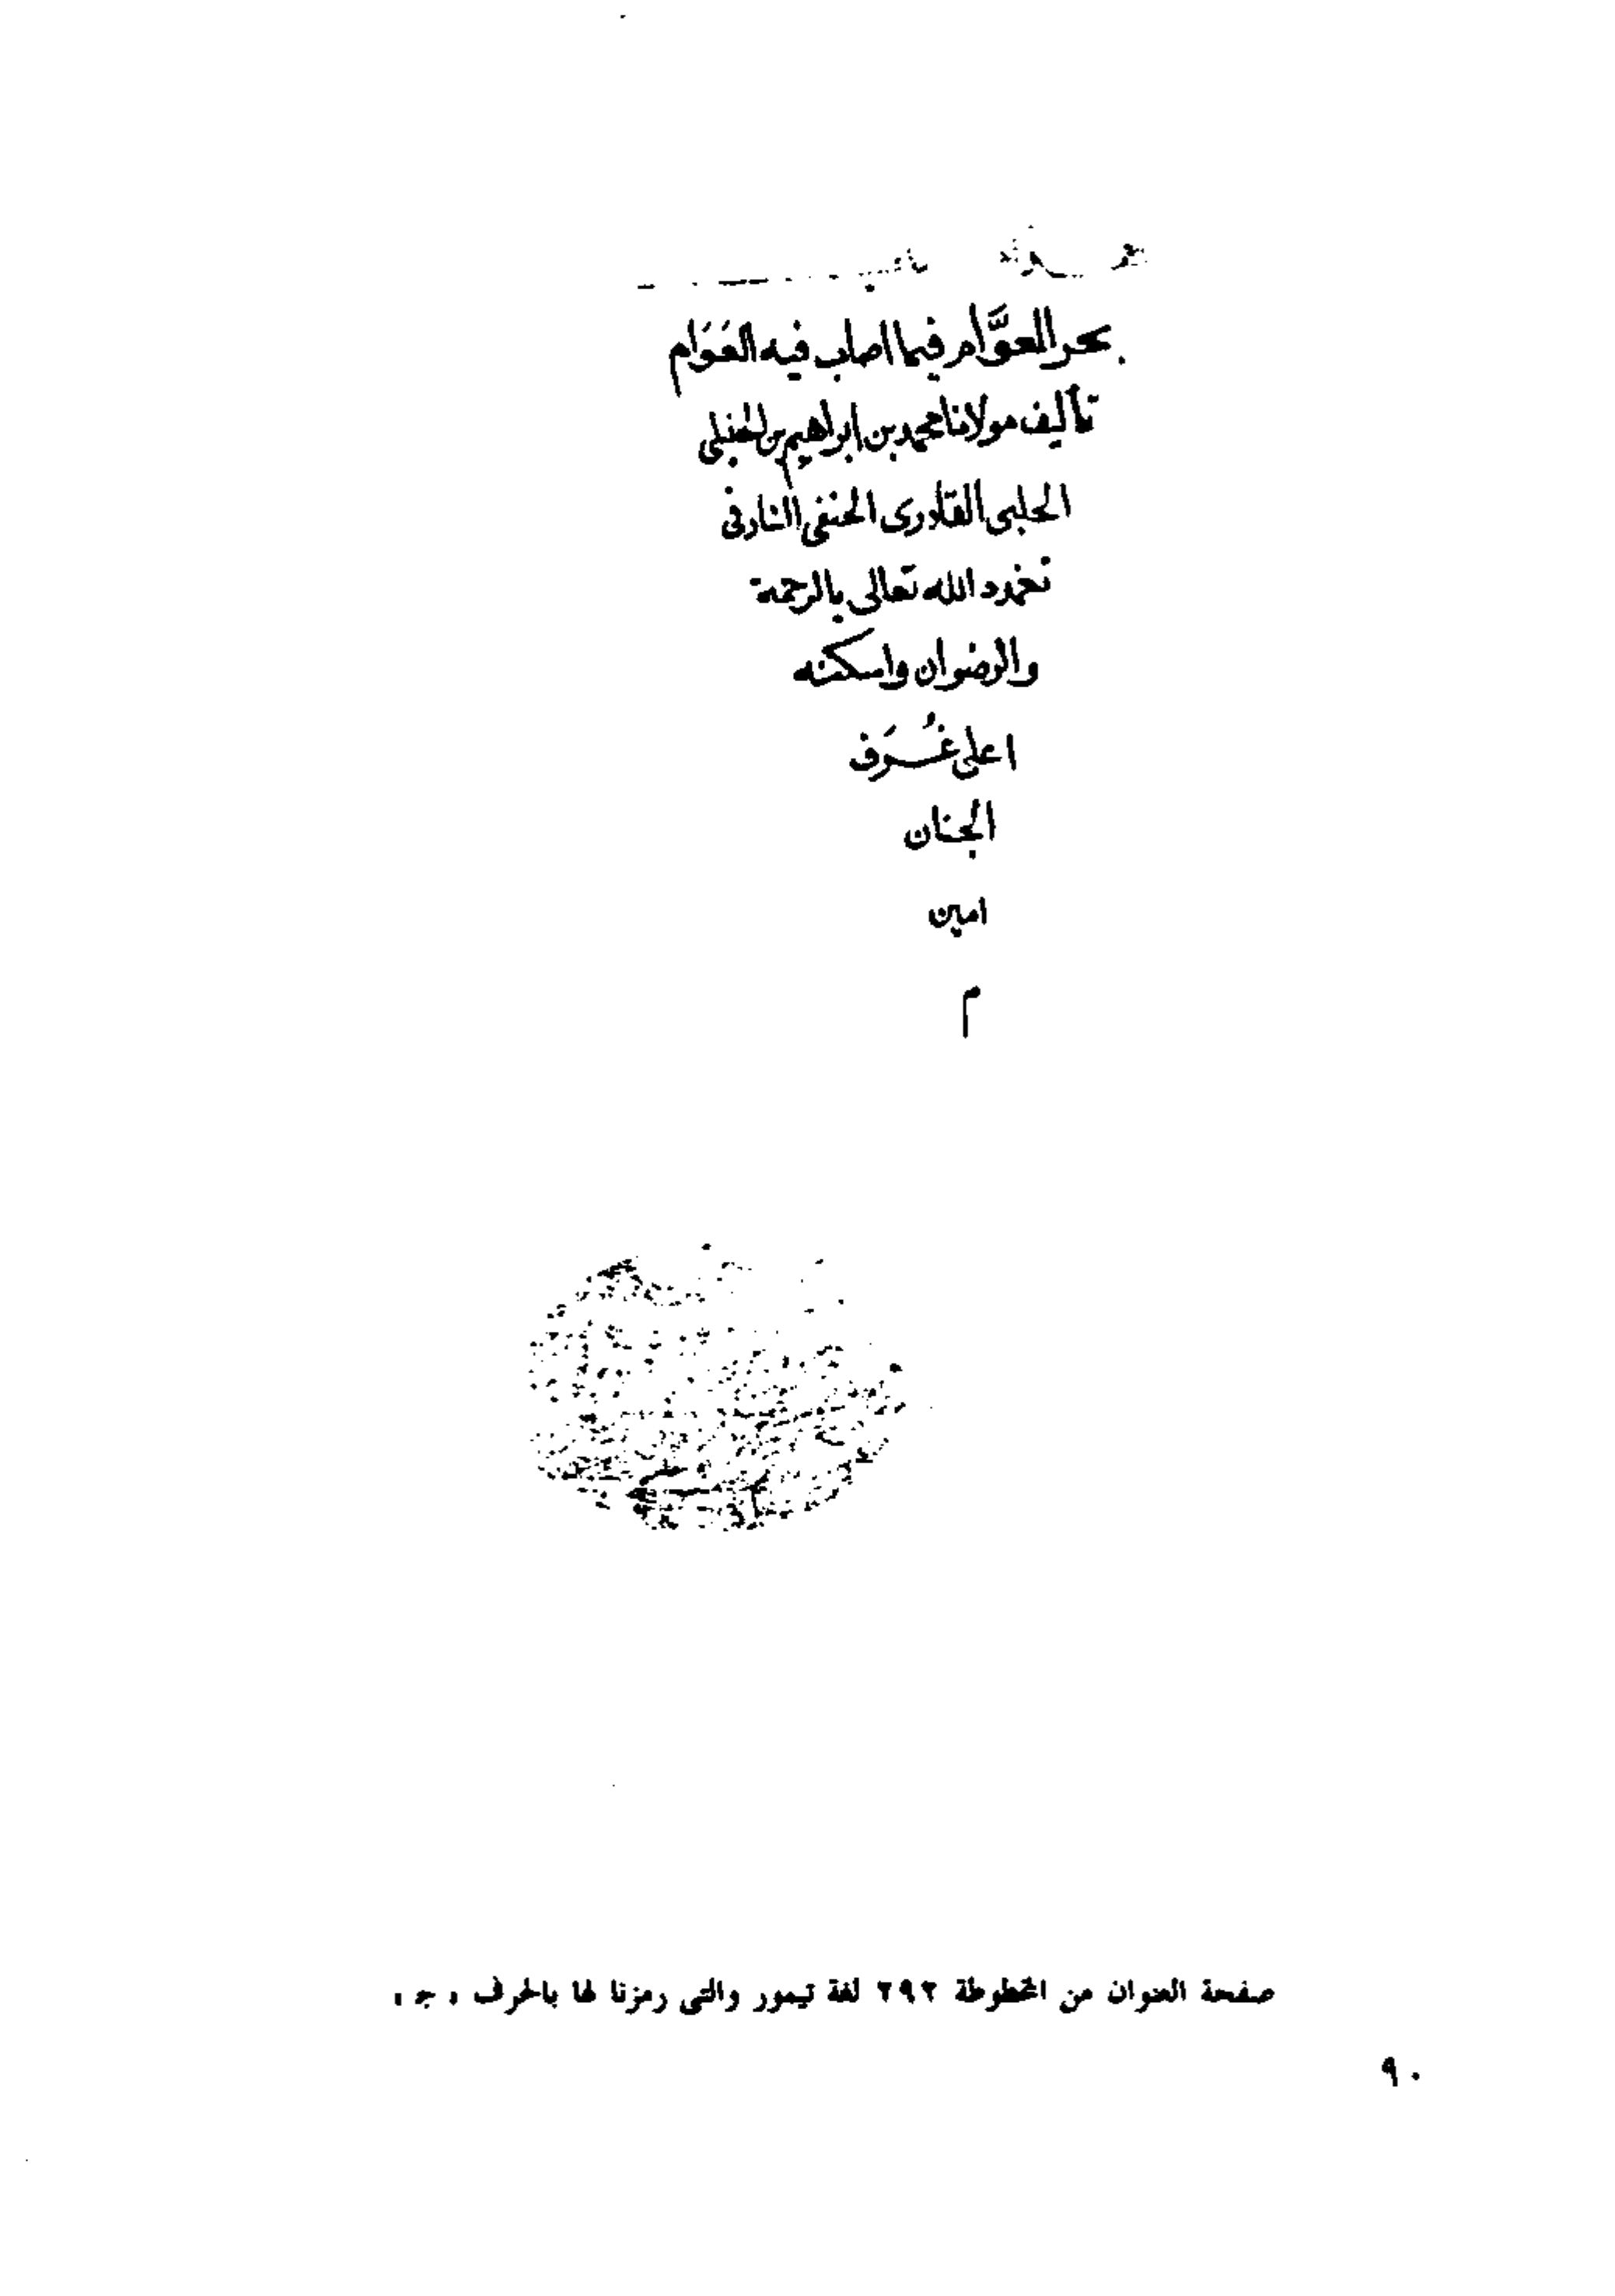 بحر العوَّام فيما اصاب فيه العَوَام
تأليف مولانا محمد بن ابراهيم بن الحنبلى
الحلبى القادرى الحنفى التاذفى
تغمده الله تعالى بالرحمة
والرضوان واسكنه
اعلى غُرَف
الجنان
امين
م
صفحة العنوان من المخطوطة ٢٩٢ لغة تيمور والتى رمزنا لها بالحرف « جـ »
٩٠